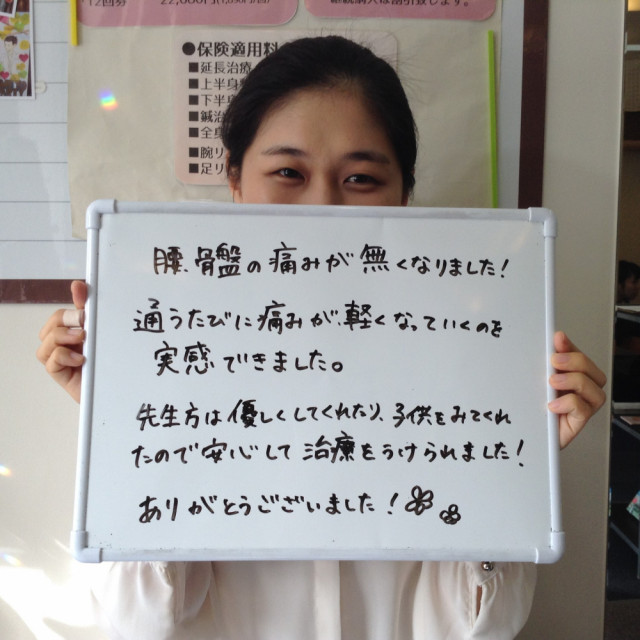 12回分 22,000円
●保険適用料
■延長治療
■上半身
■下半身
■鍼治
■全身
■腕リ
■足リ
腰、骨盤の痛みが無くなりました!
通うたびに痛みが軽くなっていくのを
実感できました。
先生方は優しくしてくれたり、子供をみてくれ
たので安心して治療をうけられました!
ありがとうございました!